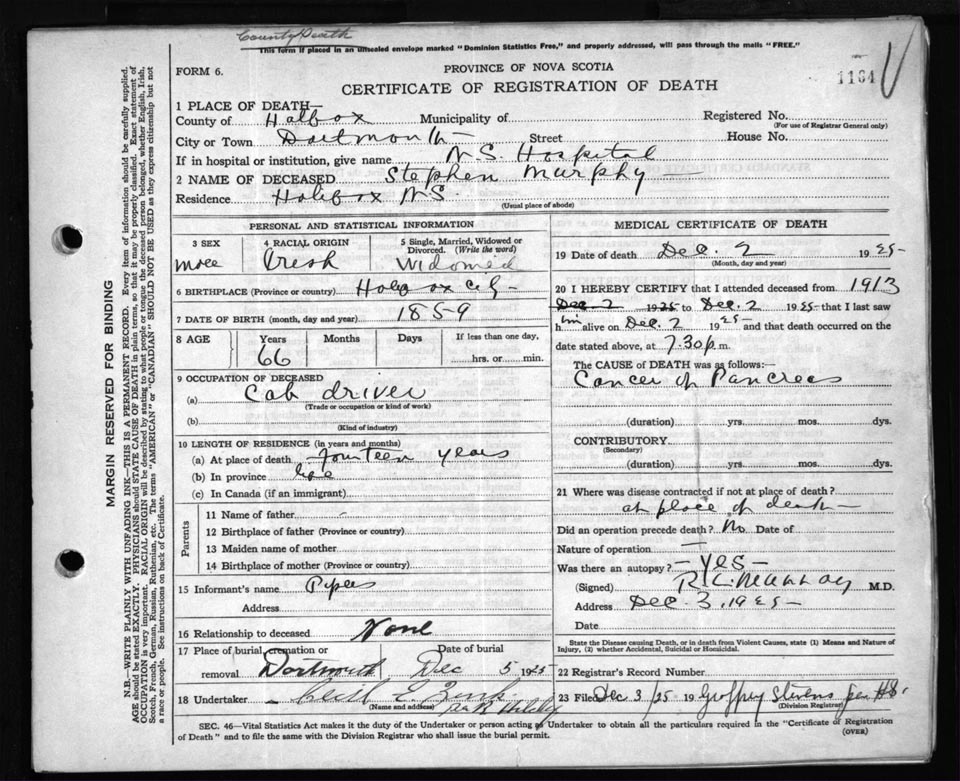 County Death
This form if placed in an unsealed envelope marked "Dominion Statistics Free," and properly addressed, will pass through the mails "FREE."
FORM 6.
PROVINCE OF NOVA SCOTIA
1164
CERTIFICATE OF REGISTRATION OF DEATH
1 PLACE OF DEATH—
County of Halifax Municipality of Registered No.
(For use of Registrar General only)
City or Town Dartmouth Street House No.
If in hospital or institution, give name N.S. Hospital
2 NAME OF DECEASED Stephen Murphy
Residence Halifax N.S.
(Usual place of abode)
PERSONAL AND STATISTICAL INFORMATION
3 SEX 4 RACIAL ORIGIN 5 Single, Married, Widowed or Divorced. (Write the word)
Male Irish Widowed
6 BIRTHPLACE (Province or country) Halifax City
7 DATE OF BIRTH (month, day and year) 1859
8 AGE Years Months Days If less than one day,
66 hrs. or min.
9 OCCUPATION OF DECEASED
(a) Cab driver
(Trade or occupation or kind of work)
(b)
(Kind of industry)
10 LENGTH OF RESIDENCE (in years and months)
(a) At place of death fourteen years
(b) In province life
(c) In Canada (if an immigrant)
Parents
11 Name of father
12 Birthplace of father (Province or country)
13 Maiden name of mother
14 Birthplace of mother (Province or country)
15 Informant's name Papers
Address
16 Relationship to deceased None
17 Place of burial, cremation or removal Date of burial
Dartmouth Dec 5 1925
18 Undertaker Cecil E. Zink
(Name and address)
MEDICAL CERTIFICATE OF DEATH
19 Date of death Dec. 2 1925
(Month, day and year)
20 I HEREBY CERTIFY that I attended deceased from 1913
Dec. 2 1925 to Dec. 2 1925 that I last saw
him alive on Dec. 2 1925 and that death occurred on the
date stated above, at 7.30 p.m.
The CAUSE of DEATH was as follows:—
Cancer of Pancreas
(duration) yrs. mos. dys.
CONTRIBUTORY
(Secondary)
(duration) yrs. mos. dys.
21 Where was disease contracted if not at place of death?
at place of death
Did an operation precede death? No Date of
Nature of operation
Was there an autopsy? Yes
(Signed) M.D.
Address Dec 3, 1925
Date
State the Disease causing Death, or in death from Violent Causes, state (1) Means and Nature of Injury, (2) whether Accidental, Suicidal or Homicidal.
22 Registrar's Record Number
23 Filed Dec 3/25 19 Geoffrey Stevens
(Division Registrar)
SEC. 46—Vital Statistics Act makes it the duty of the Undertaker or person acting as Undertaker to obtain all the particulars required in the "Certificate of Registration
of Death" and to file the same with the Division Registrar who shall issue the burial permit.
(OVER)
MARGIN RESERVED FOR BINDING
N.B.—WRITE PLAINLY WITH UNFADING INK—THIS IS A PERMANENT RECORD. Every item of information should be carefully supplied.
AGE should be stated EXACTLY. PHYSICIANS should STATE CAUSE OF DEATH in plain terms, so that it may be properly classified. Exact statement of
OCCUPATION is very important. RACIAL ORIGIN will be described by stating to what people or tongue the deceased person belonged, whether English, Irish,
Scotch, French, German, Russian, Ruthenian, etc. The terms "AMERICAN" or "CANADIAN" SHOULD NOT BE USED as they express citizenship but not
a race or people. See instructions on back of Certificate.